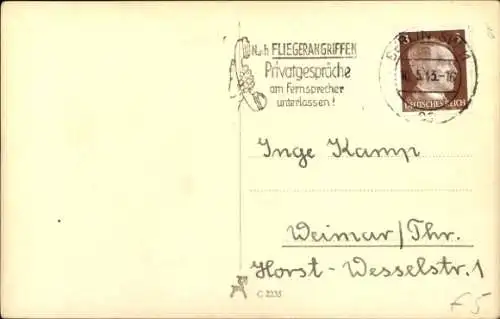 Nach FLIEGERANGRIFFEN
Privatgespräche
am Fernsprecher
unterlassen!
BERLIN
DEUTSCHES REICH
Inge Kamp
Weimar/Thr.
Horst-Wesselstr. 1
C 2235
F5